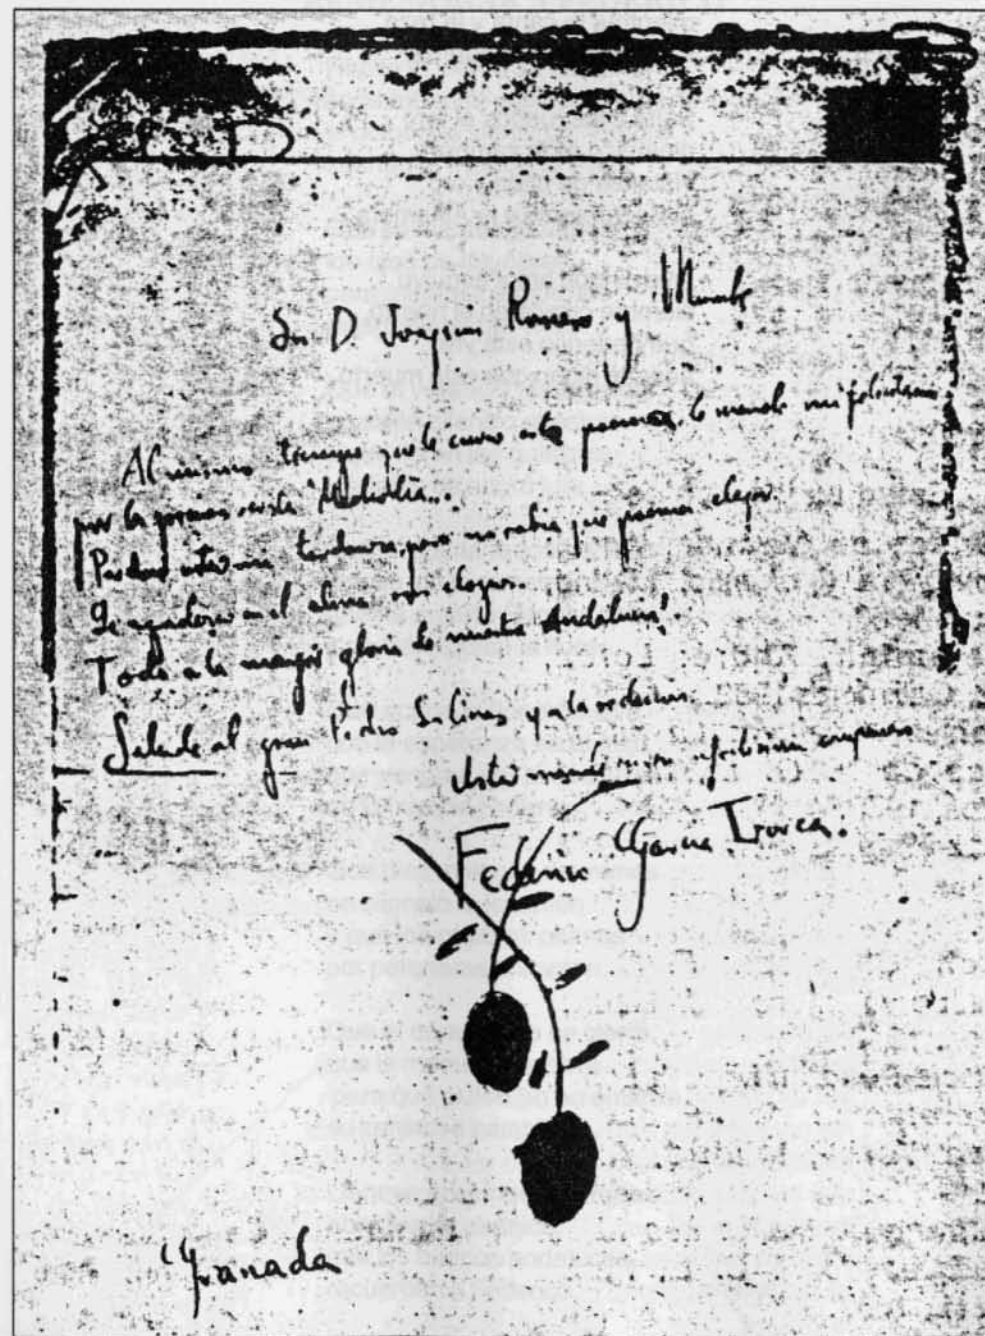 Sr D. Joaquin Romero y Murube
Al mismo tiempo que le envio este poema, le mando mi felicitacion
por la preciosa revista "Mediodia".
Perdone usted mi tardanza, pero no sabia que poema elegir.
Le agradezco en el alma sus elogios.
Todo a la mayor gloria de nuestra Andalucia!
Salude al gran Pedro Salinas y a la redaccion.
Usted mande en su afectisimo compañero
Federico Garcia Lorca.
Granada